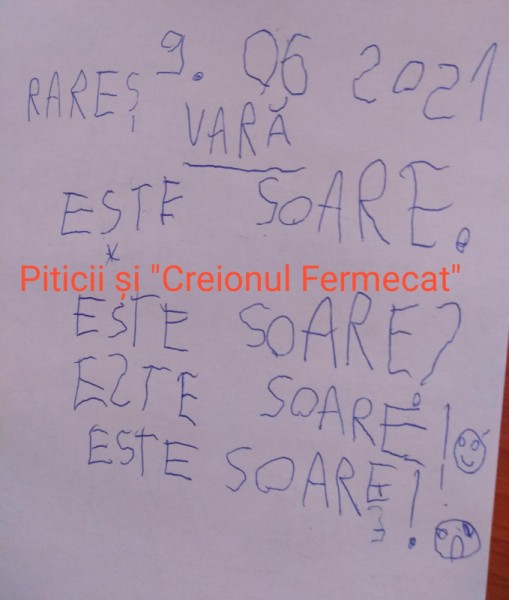 9. 06 2021
RAREȘ
VARĂ
ESTE SOARE.
*
Piticii și "Creionul Fermecat"
ESTE SOARE?
EZTE SOARE!
ESTE SOARE!